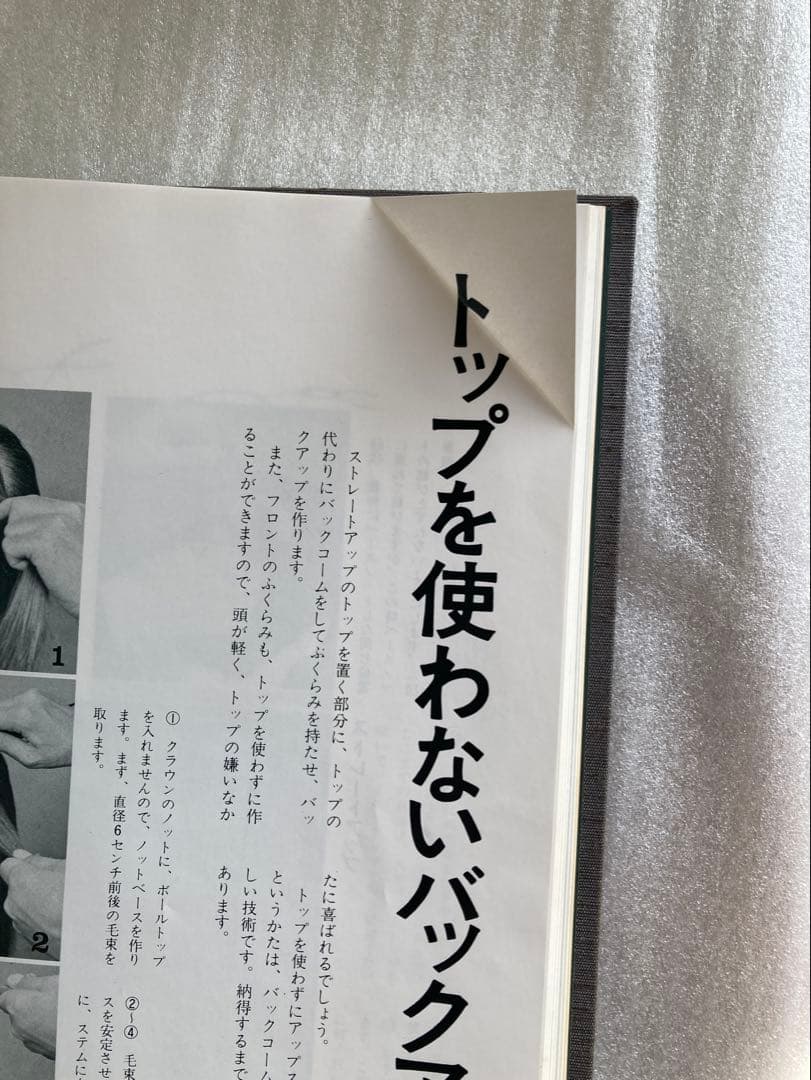 トップを使わないバックア
ストレートアップのトップを置く部分に、トップの
代わりにバックコームをしてふくらみを持たせ、バッ
クアップを作ります。
また、フロントのふくらみも、トップを使わずに作
ることができますので、頭が軽く、トップの嫌いなか
たに喜ばれるでしょう。
トップを使わずにアップス
というかたは、バックコーム
しい技術です。納得するまで
あります。
① クラウンのノットに、ボールトップ
を入れませんので、ノットベースを作り
ます。まず、直径6センチ前後の毛束を
取ります。
②〜④ 毛束
スを安定させ
に、ステムに
1
2